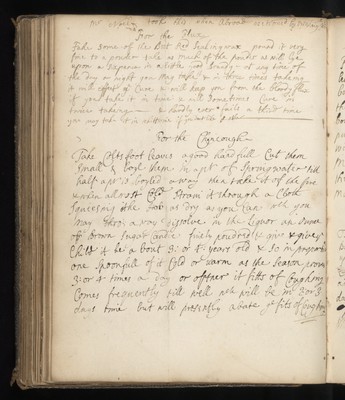 took this when almost
For the Flux
Take some of the Best Red Sealing wax pound it very
fine to a powder take as much of the powder as will lie
upon a Sixpence in a little and at any time of
the day or night you may take it & in three times taking
it will effect ye Cure & will keep you from the bloody flux
if you take it in time it will sometimes Cure in
twice taking & hardly ever fails a third time
you may take it
For the Chincough
Take Coltsfoot leaves a good handfull Cut them
Small & boyle them in a pt of Springwater till
half a pt is boyled away then take it of the fire
& when allmost Cold Strain it through a Cloth
Squeezing the as dry as you Can till you
may throw away Dissolve in the liquor an ounce
of Brown Sugar Candie finely powdered & give ye
Child if it be about 3: or 4: years old & so in proportion
one Spoonfull of it Cold or warm as the Season
3: or 4 times a day or oftner if fitts of Coughing
Comes frequently till well wch will be in 2 or 3
days time but will presently abate ye fits of Coughing